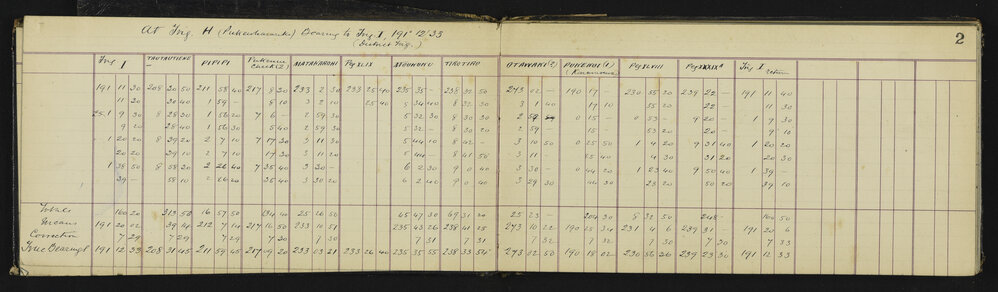 2
At Trig. H (Pukewharareki) Bearing to Trig. I, 191° 12' 33
(District Trig.)
Trig I TAUTAUTIENE PIPIPI Pukenui Check(2) MATAKAROHI Peg XLIX TIROTIRO OTAWAKI (2) Peg XLVIII Peg XXXIX A Trig I return
191 11 30 208 30 50 211 58 40 217 8 30 233 2 30 233 25 40 235 35 — 238 32 50 243 02 — 190 17 — 230 55 20 239 22 — 191 11 40
11 30 30 40 1 59 — 8 10 3 2 10 25 40 5 34 40 8 32 30 3 1 40 17 10 55 20 22 — 11 30
9 30 8 28 30 1 56 20 7 6 — 2 59 30 5 32 30 8 30 30 0 15 — 0 53 — 9 20 — 1 9 30
9 20 28 40 1 56 30 5 40 2 59 30 5 32 — 8 30 20 2 59 — 15 — 53 20 20 — 9 10
1 20 20 8 39 20 2 7 10 7 17 30 3 11 30 5 44 10 8 42 — 3 10 50 0 25 50 1 4 20 9 31 40 1 20 20
20 20 39 10 2 7 10 17 30 3 11 20 5 44 — 8 41 50 3 11 — 25 40 4 30 31 20 20 30
1 38 50 8 58 20 2 26 40 7 36 40 3 30 — 6 2 30 9 0 40 3 30 — 0 44 20 1 23 40 9 50 40 1 39 —
39 — 58 10 2 26 20 36 40 3 30 20 6 2 40 9 0 40 3 29 30 44 30 23 20 50 20 39 10
Totals 160 20 313 50 16 57 50 134 40 25 16 50 45 47 30 69 31 20 25 23 — 204 30 8 32 50 248 — 160 50
Means 191 20 02 39 14 212 7 14 217 16 50 233 10 51 235 43 26 238 41 25 243 10 22 190 25 34 231 4 6 239 31 — 191 20 6
Correction 7 29 7 29 7 29 7 30 7 30 7 31 7 31 7 32 7 32 7 30 7 30 7 33
True Bearings 191 12 33 208 31 45 211 59 45 217 9 20 233 03 21 233 26 40 235 35 55 238 33 54 243 02 50 190 18 02 230 56 36 239 23 30 191 12 33